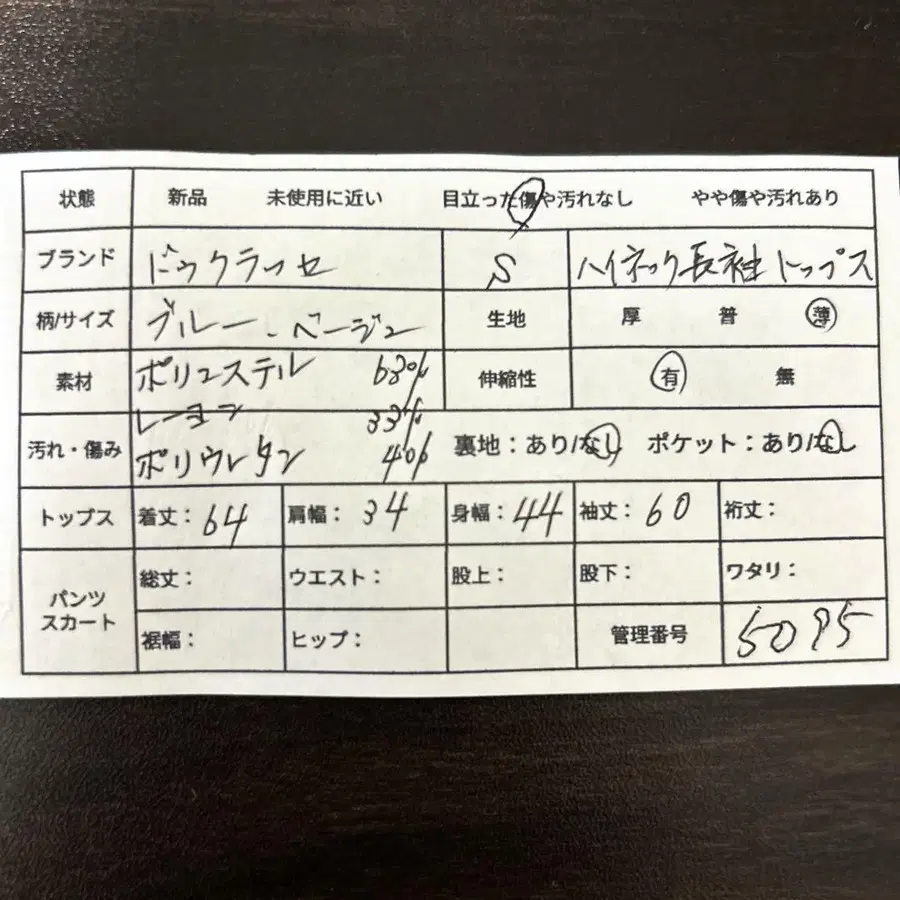 状態 新品 未使用に近い 目立った傷や汚れなし やや傷や汚れあり
ブランド ドゥクラッセ S ハイネック長袖トップス
柄/サイズ ブルー、ベージュ 生地 厚 普 薄
素材 ポリエステル 63% 伸縮性 有 無
レーヨン 33%
汚れ・傷み ポリウレタン 4% 裏地:あり/なし ポケット:あり/なし
トップス 着丈:64 肩幅:34 身幅:44 袖丈:60 裄丈:
パンツ スカート 総丈: ウエスト: 股上: 股下: ワタリ:
裾幅: ヒップ: 管理番号 5095